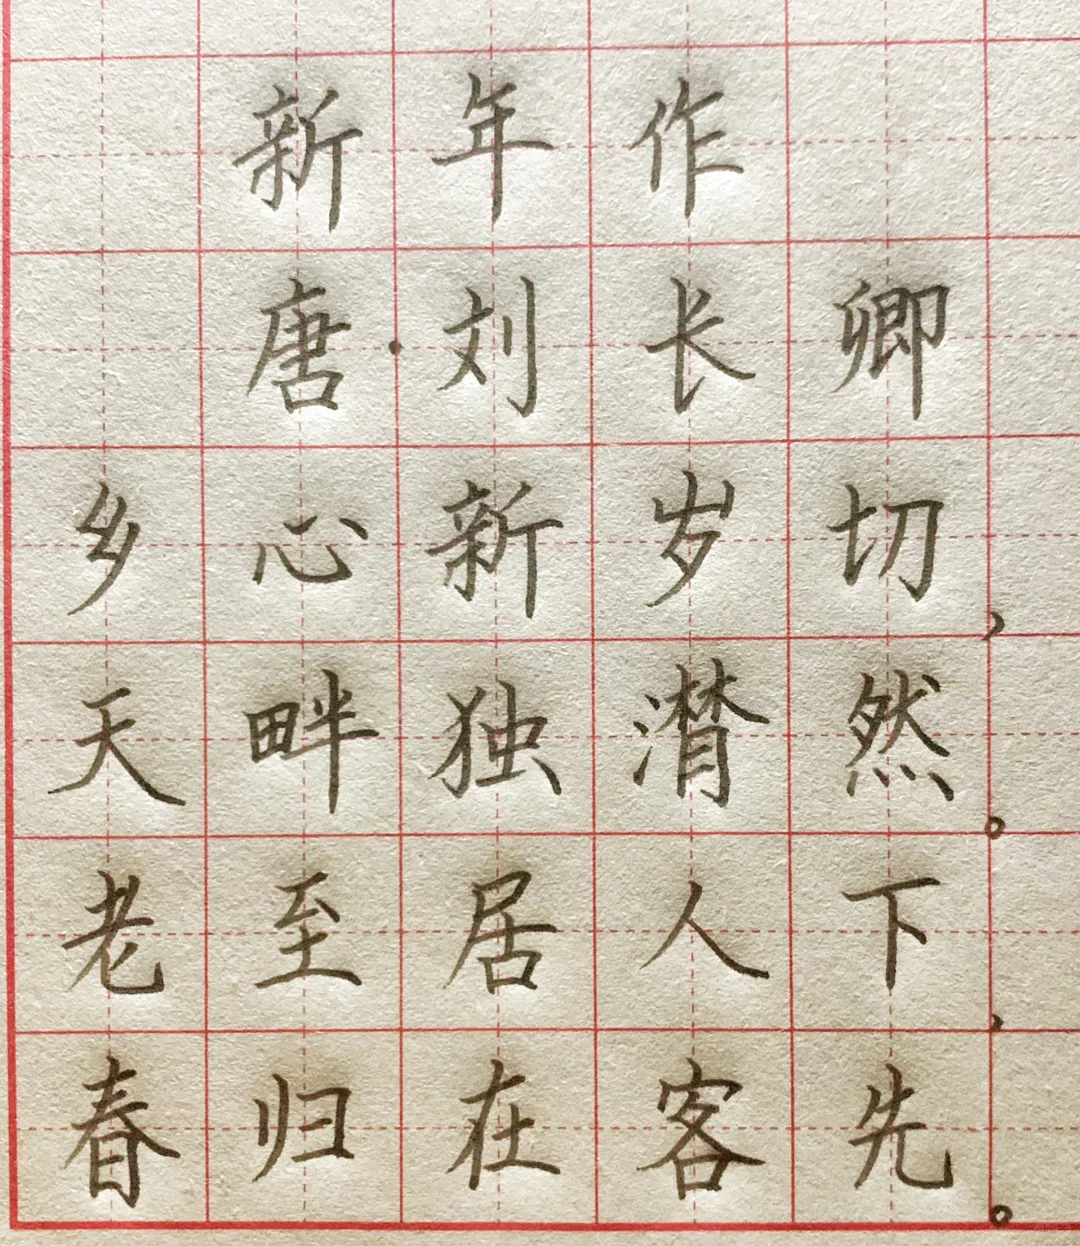 新年作
唐·刘长卿
乡心新岁切，
天畔独潸然。
老至居人下，
春归在客先。